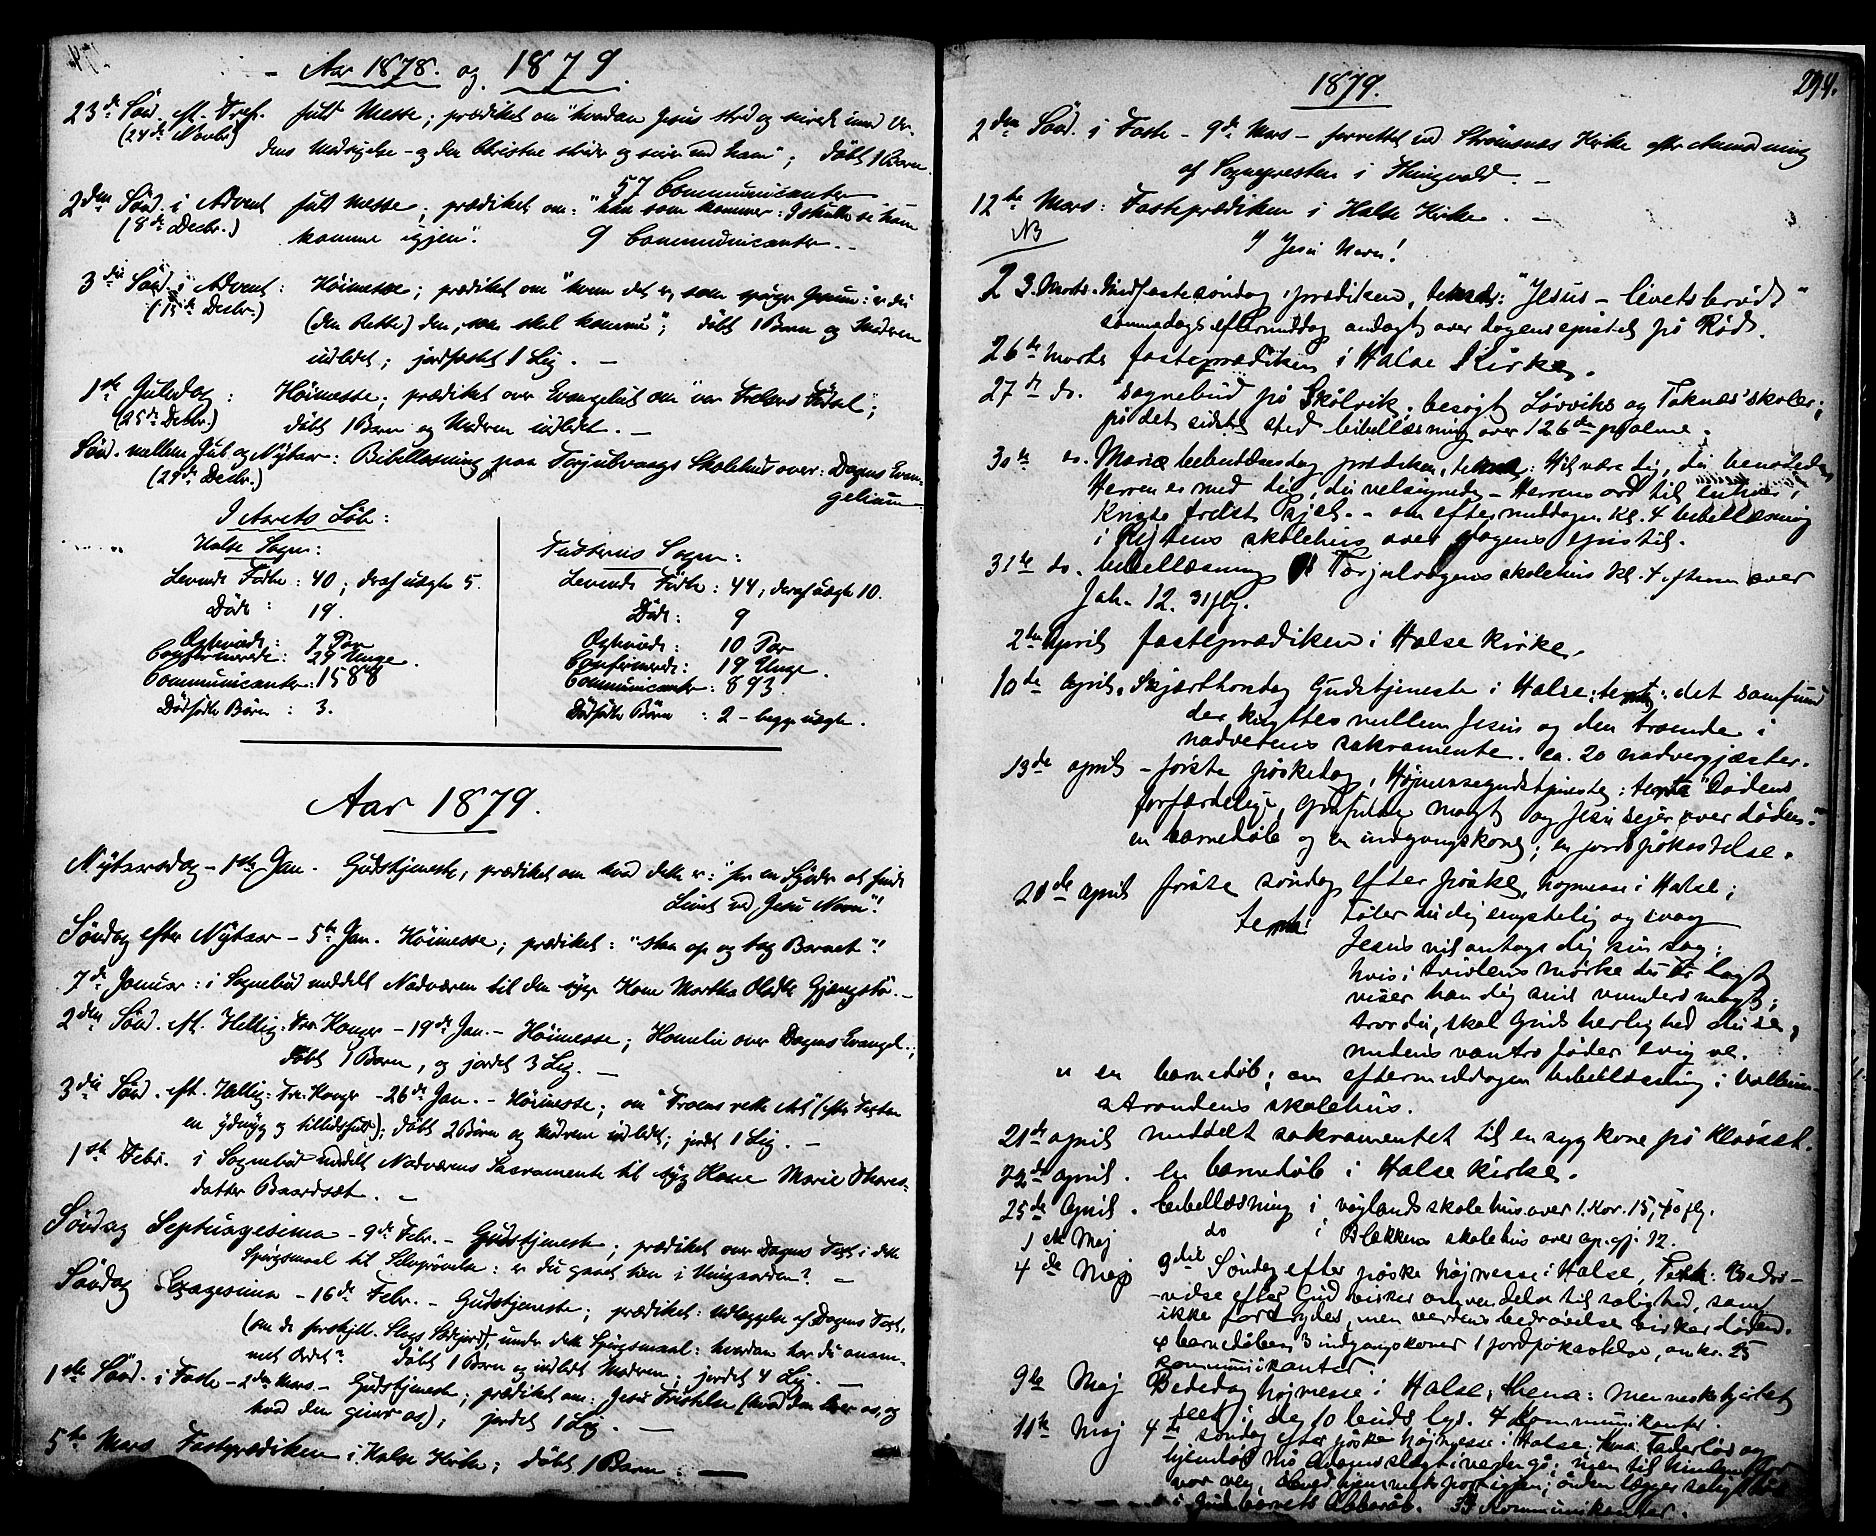 Aar 1878. og 1879.
23de Sönd. eft. Tref. fuld Messe; prædiket om "hvordan Jesus stred og seirede imod Ver-
(24de Novbr.) dens Modsigelse - og den Christne strider og seirer ved ham"; döbt 1 Barn.
57 Communicanter
2den Sönd. i Advent fuld Messe; prædiket om: "han som kommer: I skulle se ham
(8de Decbr.) komme igjen". 9 Communicanter. -
3die Sönd. i Advent: Höimesse; prædiket om "hvem det er, som spörger Jesum: er du
(15de Decbr.) (den Rette) den, som skal komme"; döbt 1 Barn og Moderen
indledet; jordfæstet 1 Lig. -
1ste Juledag: Höimesse; prædiket over Evangeliet om "vor Frelsers Födsel";
(25de Decbr.) döbt 1 Barn og Moderen indledet. -
Sönd. mellem Jul og Nytaar: Bibellæsning paa Torjulvaags Skolehus over: Dagens Evan-
(29de Decbr.) gelium.
I Aarets Löb:
Halse Sogn:
Levende Födte: 40, deraf uægte 5.
Döde: 19.
Ægteviede: 7 Par
Confirmerede: 29 Unge.
Communicanter: 1588
Dödfödte Börn: 3.
Tusternes Sogn:
Levende Födte: 44, deraf uægte 10.
Döde: 9
Ægteviede: 10 Par
Confirmerede: 19 Unge.
Communicanter: 893.
Dödfödte Börn: 2 - begge uægte.
Aar 1879.
Nytaarsdag - 1ste Jan. Gudstjeneste, prædiket om hvad dette er: "for en Synder at finde
Livet ved Jesu Navn"!
Söndag efter Nytaar - 5te Jan. Höimesse; prædiket: "staa op og tag Barnet"!
7de Januar: i Sognebud meddelt Nadveren til den syge Kone Martha Olsdtr Gjengstö. -
2den Sönd. eft. Hellig. Tre Konger - 19de Jan. - Höimesse; Homelie over Dagens Evangel.;
Döbt 1 Barn, og jordet 3 Lig. -
3die Sönd. eft. Hellig: Tre Konger - 26de Jan. - Höimesse; om "Troens rette Art" (efter Texten
en ydmyg og tillidsfuld); döbt 2 Börn og Mödrene indledet; jordet 1 Lig. -
1ste Febr. i Sognebud meddelt Nadverens Sacramente til syg Kone Marie
datter Baardsæt. -
Söndag Septuagesima - 9de Febr. - Gudstjeneste; prædiket over Dagens Text i dette
Spörgsmaal til Selvprövelse: er du gaaet hen i Vingaarden? -
Söndag Sexagesima - 16de Febr. - Gudstjeneste; prædiket: Udlæggelse af Dagens Text,
(om de forskjell. Slags Sædejord), under dette Spörgsmaal: hvordan har du anam-
met Ordet? döbt 1 Barn og indledt Moderen; jordet 4 Lig. -
1ste Sönd. i Faste - 2den Mars - Gudstjeneste; prædiket om: Jesu Fristelse (hvad den lærer os, og
hvad den giver os); jordet 1 Lig. -
5te Mars Fasteprædiken i Halse Kirke; döbt 1 Barn. -
1879.
294.
2den Sönd. i Faste - 9de Mars - forrettet ved Strømsnæs Kirke efter Anmodning
af Sognepresten i Thingvold. -
12te Mars: Fasteprædiken i Halse Kirke. -
NB
I Jesu Navn!
23. Marts. Midfastesøndag, prædiken, tekst: "Jesus - livets brød"
sammedags eftermiddag andagt over dagens epistel på Rød.
26de marts fasteprædiken i Halse Kirke.
27de ds. sognebud på Skålvik, besøgt Løvviks og Taknæs' skoler;
på det sidste sted bibellæsning over 126de psalme.
30te ds. Mariæ bebudelsesdag prædiken, tekst: Hil være dig, du benådede,
Herren er med dig, du velsignede - Herrens ord til enhver i
Kristo frelst sjæl. - om eftermiddagen kl. 4 bibellæsning
i Rytens skolehus over dagens epistel.
31te ds. bibellæsning i Torjulvågens skolehus kl. 4 efterm over
Joh. 12. 31 flg.
2den April fasteprædiken i Halse kirke.
10de April. Skjærthorsdag Gudstjeneste i Halse: tekst: det samfund
der knyttes mellem Jesus og den troende i
nadverens sakramente. ca. 20 nadvergjæster.
13de april - første påskedag, Højmessegudstjeneste; tekst "Dødens
forfærdelige, magt og Jesu sejer over døden."
en barnedåb og en indgangskone; en jordpåkastelse.
20de april første søndag efter påske, højmesse i Halse;
tekst: Føler du dig engstelig og svag
Jesus vil antage dig sin sag;
hvis i tvivlens mørke du er lagt
viser han dig sint vunders magt;
tror du, skal Guds herlighed du se,
medens vantro føder evig ve.
" en barnedåb; om eftermiddagen bibellæsning i Valsum-
strandens skolehus.
21de april meddelt sakramentet til en syg kone på Kläset.
22de april. en barnedåb i Halse kirke.
25de April. bibellæsning i vaglands skolehus over 1. Kor. 15, 40 flg.
1ste Maj do i Blekkens skolehus over ap. gj. 12.
4de Maj 3die Søndag efter påske højmesse i Halse, Tekst: Bedrø-
velse efter Gud virker omvendelse til salighed, som
ikke fortryder, men verdens bedrøvelse virker døden.
4 barnedåben 3 indgangskoner 1 jordpåkastelse, omkr. 25
kommunikanter.
9de Maj Bededag højmesse i Halse; thema: menneskehjertet
seet i de 10 buds lys. 4 Kommunikanter.
11te Maj 4de søndag efter påske højmesse i Halse; thema: Faderløs og
hjemløs må Adams slægt i verden gå; men til himlen
vor vej,
i Gud barnets Abbaråb. 33 Kommunikanter.